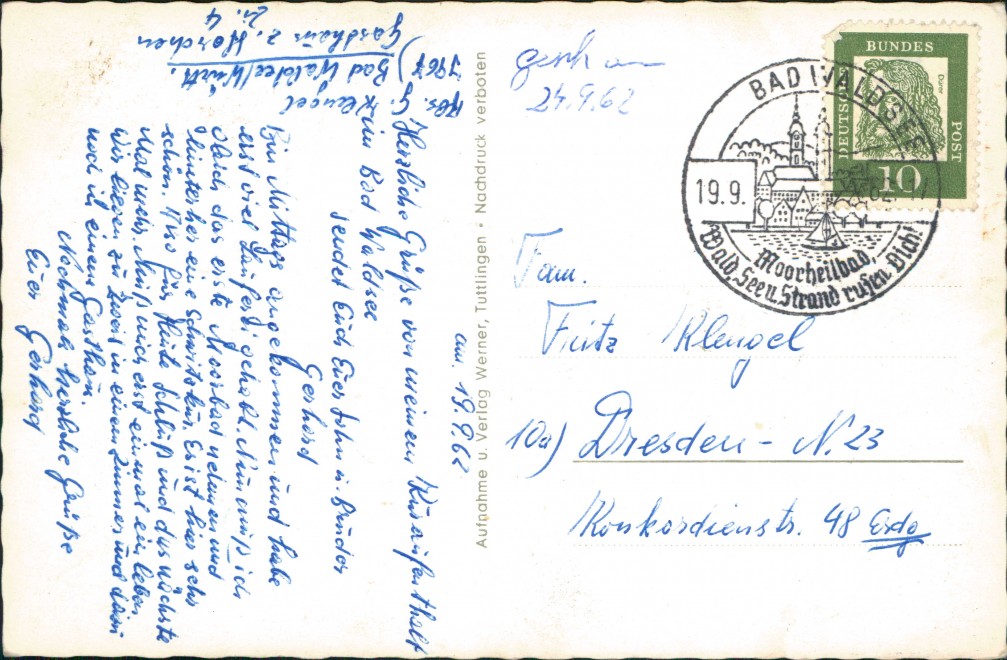 Abs. G. Klengel
7967) Bad Waldsee/Württ.
Gasthaus z. Horchen
Zi. 4
am. 19.9.62
Herzliche Grüße von meinem Kuraufenthalt
in Bad Waldsee
sendet Euch Euer Sohn u. Bruder
Gerhard
Bin Mittags angekommen und habe
erst viel Lauferei gehabt. Nun muß ich
gleich das erste Moorbad nehmen und
hinterher eine Schwitzkur. Es ist hier sehr
schön. Also für Heute Schluß und das nächste
Mal mehr. Muß mich erst einmal ein leben
Wir liegen zu zweit in einem Zimmer und dann
noch in einem Gasthau.
Nochmals herzliche Grüße
Euer Gerhard
Aufnahme u. Verlag Werner, Tuttlingen · Nachdruck verboten
24.9.62
BUNDES
POST
DEUTSCHE
Dürer
10
BAD WALDSEE
19.9.
Moorheilbad,
Wald, See u. Strand rufen Dich!
Fam.
Fritz Klengel
10a) Dresden - N. 23
Konkordienstr. 48 Erdg